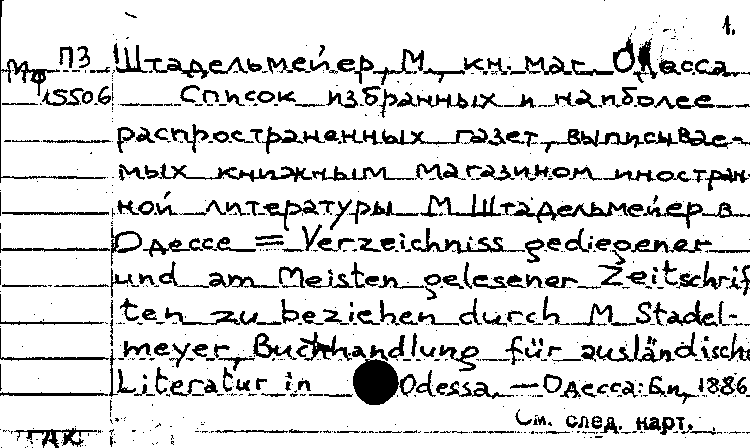 1.
ПЗ Штадельмейер, М., кн. маг. Одесса
МФ
15506 Список избранных и наиболее
распространенных газет, выписывае-
мых книжным магазином иностран-
ной литературы М Штадельмейер в
Одессе = Verzeichniss gediegener
und am Meisten gelesener Zeitschrif
ten zu beziehen durch M Stadel-
meyer, Buchhandlung für ausländische
Literatur in Odessa. — Одесса: Бп, 1886
См. след. карт.
ГАК